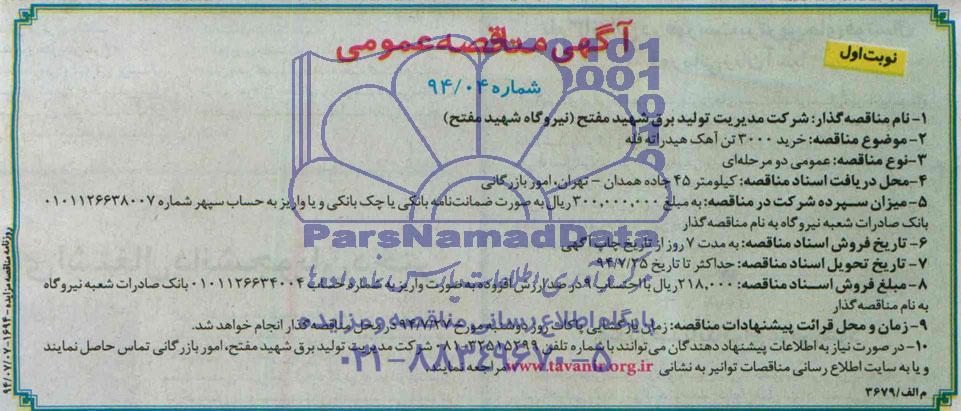 آگهی مناقصه عمومی
نوبت اول
شماره ۹۴/۰۴
۱- نام مناقصه گذار: شرکت مدیریت تولید برق شهید مفتح (نیروگاه شهید مفتح)
۲- موضوع مناقصه: خرید ۳۰۰۰ تن آهک هیدراته فله
۳- نوع مناقصه: عمومی دو مرحله‌ای
۴- محل دریافت اسناد مناقصه: کیلومتر ۴۵ جاده همدان - تهران، امور بازرگانی
۵- میزان سپرده شرکت در مناقصه: به مبلغ ۳۰۰,۰۰۰,۰۰۰ ریال به صورت ضمانت‌نامه بانکی یا چک بانکی و یا واریز به حساب سپهر شماره ۰۱۰۱۱۲۶۶۳۸۰۰۷
بانک صادرات شعبه نیروگاه به نام مناقصه گذار
۶- تاریخ فروش اسناد مناقصه: به مدت ۷ روز از تاریخ چاپ آگهی
۷- تاریخ تحویل اسناد مناقصه: حداکثر تا تاریخ ۹۴/۷/۲۵
۸- مبلغ فروش اسناد مناقصه: ۲۱۸,۰۰۰ ریال با احتساب ۹ درصد ارزش افزوده به صورت واریز به شماره حساب ۰۱۰۱۱۲۶۶۳۴۰۰۴ بانک صادرات شعبه نیروگاه
به نام مناقصه گذار
۹- زمان و محل قرائت پیشنهادات مناقصه: زمان بازگشایی پاکات روز دوشنبه مورخ ۹۴/۷/۲۷ در محل مناقصه گذار انجام خواهد شد.
۱۰- در صورت نیاز به اطلاعات پیشنهاد دهندگان می‌توانند با شماره تلفن ۳۲۵۱۵۲۹۹-۰۸۱ شرکت مدیریت تولید برق شهید مفتح، امور بازرگانی تماس حاصل نمایند
و یا به سایت اطلاع رسانی مناقصات توانیر به نشانی www.tavanir.org.ir مراجعه نمایند
م الف/۳۶۷۹
روزنامه مناقصه مزایده - ۱۶۹۴ - ۹۴/۰۷/۰۷
ParsNamadData
پایگاه اطلاع رسانی مناقصه و مزایده
۰۲۱-۸۸۳۴۹۶۷۰-۵